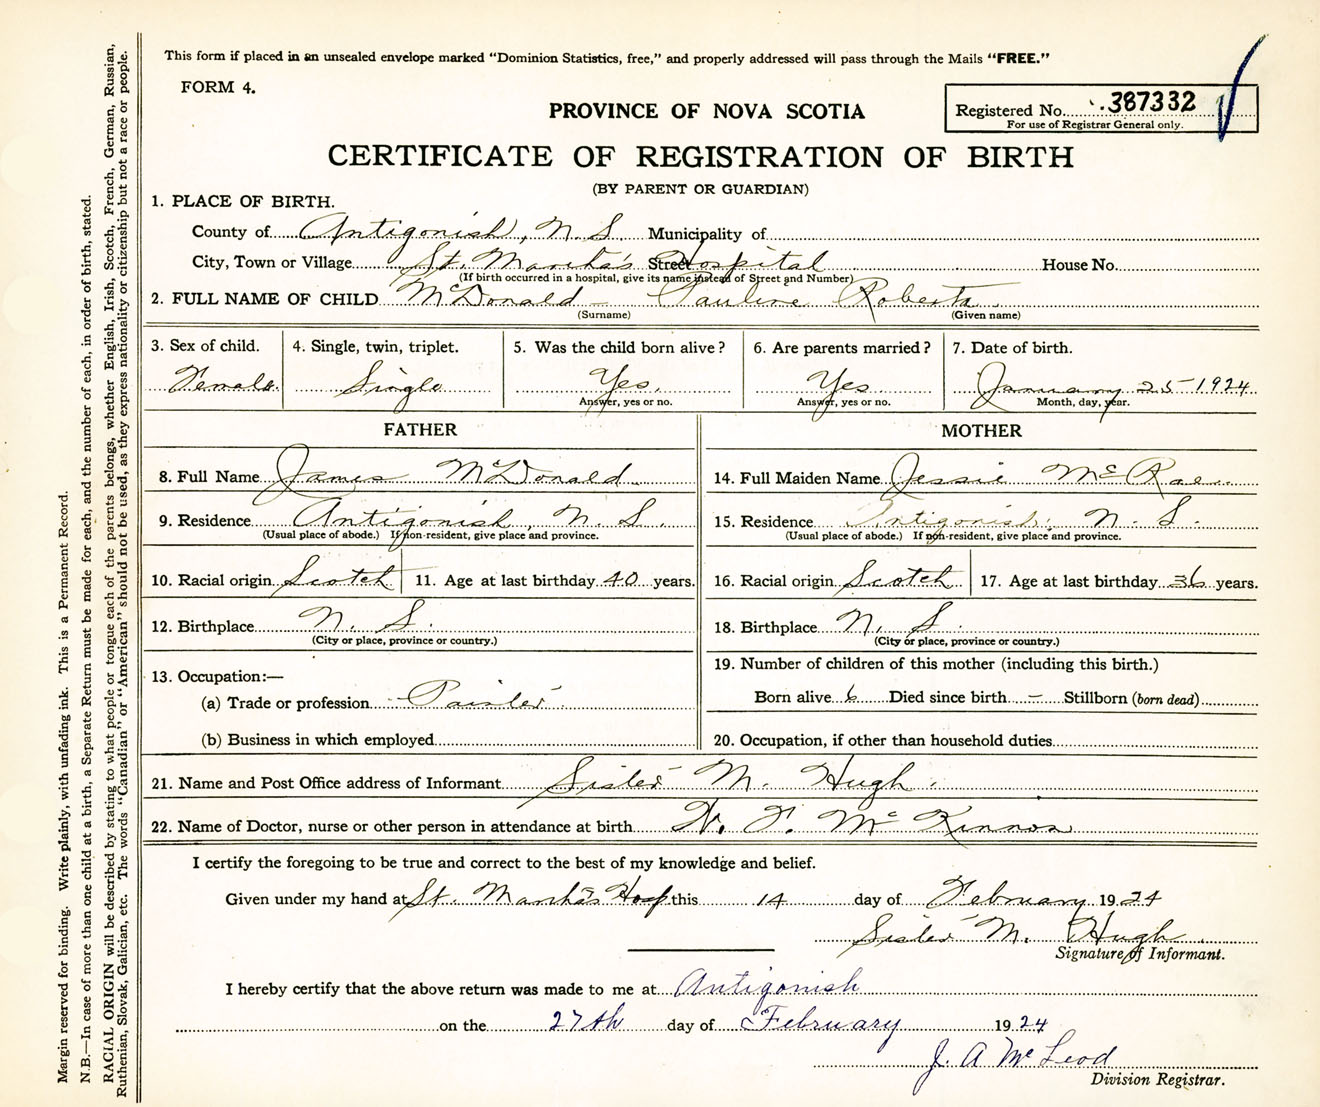 This form if placed in an unsealed envelope marked "Dominion Statistics, free," and properly addressed will pass through the Mails "FREE."
FORM 4.
PROVINCE OF NOVA SCOTIA
Registered No. 387332
For use of Registrar General only.
CERTIFICATE OF REGISTRATION OF BIRTH
(BY PARENT OR GUARDIAN)
1. PLACE OF BIRTH.
County of Antigonish, N. S. Municipality of
City, Town or Village St. Martha's Street Hospital House No.
(If birth occurred in a hospital, give its name instead of Street and Number)
2. FULL NAME OF CHILD McDonald - Pauline Roberta
(Surname) (Given name)
3. Sex of child. 4. Single, twin, triplet. 5. Was the child born alive? 6. Are parents married? 7. Date of birth.
Female. Single Yes. Yes January 25 1924
Answer, yes or no. Answer, yes or no. Month, day, year.
FATHER MOTHER
8. Full Name James McDonald 14. Full Maiden Name Jessie McRae
9. Residence Antigonish, N. S. 15. Residence Antigonish, N. S.
(Usual place of abode.) If non-resident, give place and province. (Usual place of abode.) If non-resident, give place and province.
10. Racial origin Scotch 11. Age at last birthday 40 years. 16. Racial origin Scotch 17. Age at last birthday 36 years.
12. Birthplace N. S. 18. Birthplace N. S.
(City or place, province or country.) (City or place, province or country.)
19. Number of children of this mother (including this birth.)
13. Occupation:—
(a) Trade or profession Painter Born alive 6 Died since birth - Stillborn (born dead)
(b) Business in which employed 20. Occupation, if other than household duties
21. Name and Post Office address of Informant Sister M. Hugh.
22. Name of Doctor, nurse or other person in attendance at birth W. F. McKinnon
I certify the foregoing to be true and correct to the best of my knowledge and belief.
Given under my hand at St. Martha's Hosp this 14 day of February 1924
Sister M. Hugh
Signature of Informant.
I hereby certify that the above return was made to me at Antigonish
on the 27th day of February 1924
J. A McLeod
Division Registrar.
Margin reserved for binding. Write plainly, with unfading ink. This is a Permanent Record.
N.B.—In case of more than one child at a birth, a Separate Return must be made for each, and the number of each, in order of birth, stated.
RACIAL ORIGIN will be described by stating to what people or tongue each of the parents belongs, whether English, Irish, Scotch, French, German, Russian,
Ruthenian, Slovak, Galician, etc. The words "Canadian" or "American" should not be used, as they express nationality or citizenship but not a race or people.